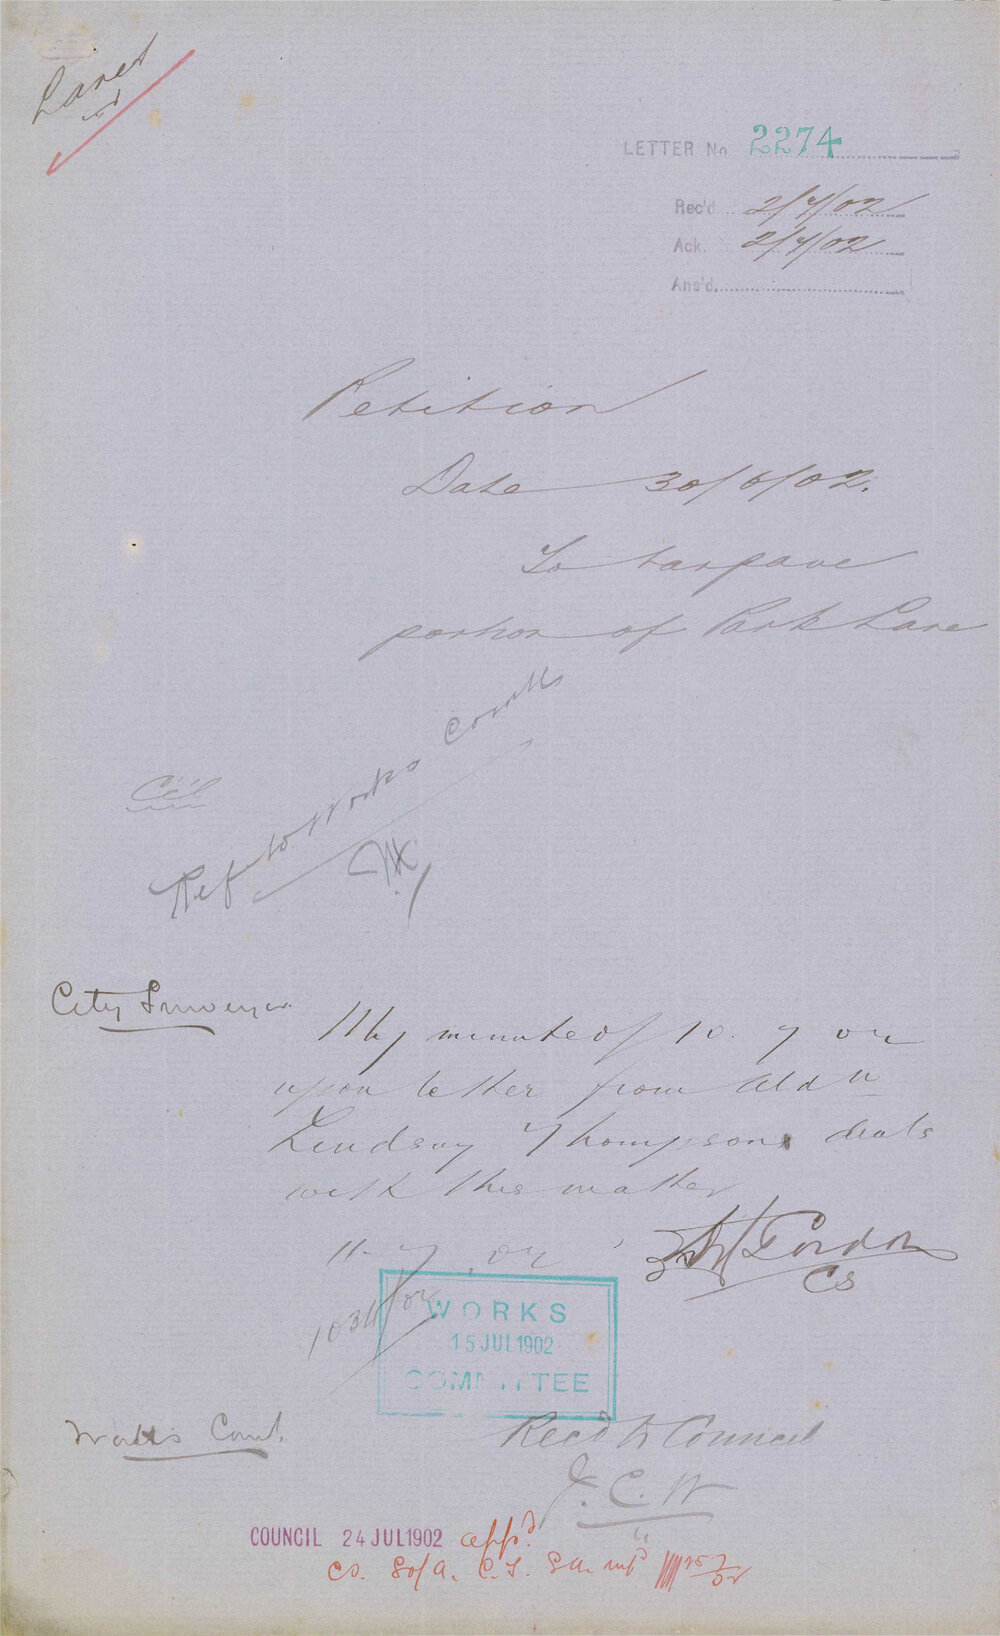 Lanes
LETTER No. 2274
Rec'd. 2/7/02
Ack. 2/7/02
Ans'd.
Petition
Date 30/6/02.
To tarpave
portion of Park Lane
Ref to Works Comtt
City Surveyor
My minute of 10. 7 02
upon letter from Ald n
Lindsay Thompson deals
with this matter
11-7.02
Gordon
CS
1034/02
WORKS
15 JUL 1902
COMMITTEE
Works Comt.
Recd to Council
J.C.W
COUNCIL 24 JUL 1902 appd.